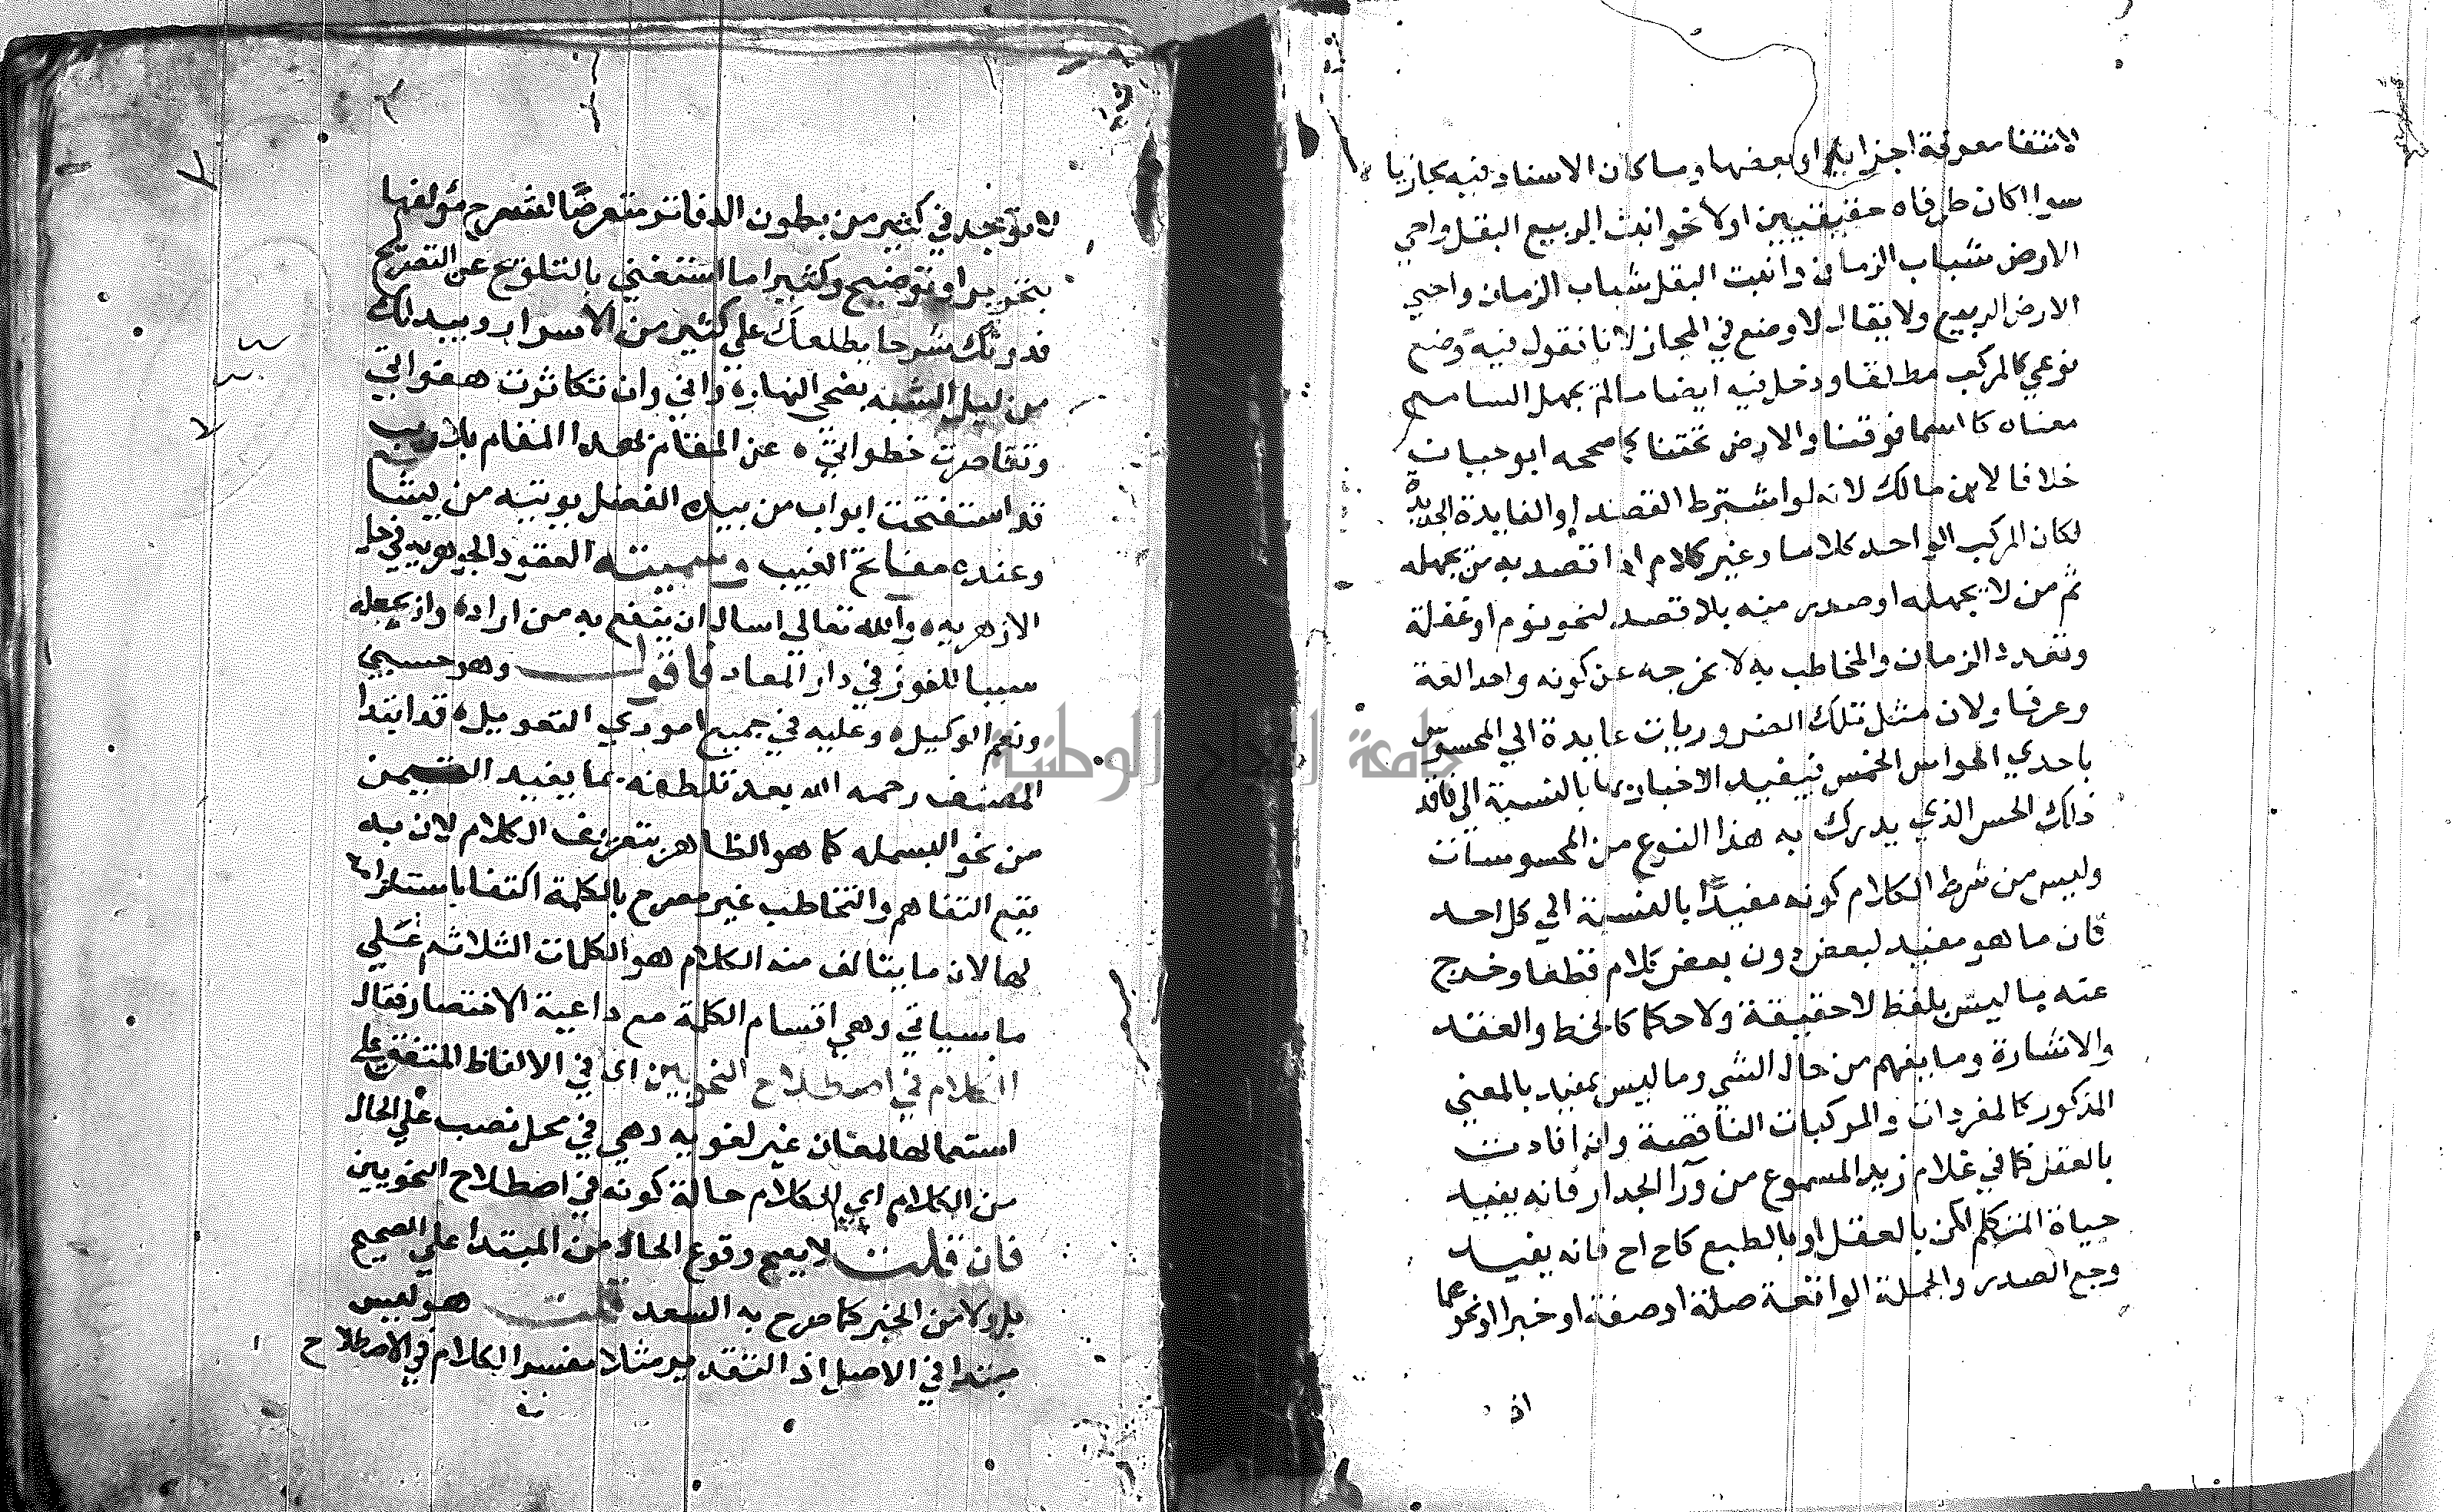 لانتفا معرفة اجزايه او بعضها وما كان الاسناد فيه مجازيا
سوا اكان طرفاه حقيقيين اولا نحو انبت الربيع البقل واحي
الارض شباب الزمان وانبت البقل شباب الزمان واحيي
الارض الربيع ولا يقال لا وضع في المجاز لانا نقول فيه وضع
نوعي كالمركب مطلقا ودخل فيه ايضا ما لم يجهل السامع
معناه كالسما فوقنا والارض تحتنا كما صححه ابو حيان
خلافا لابن مالك لانه لو اشترط القصد او الفايدة الجديدة
لكان المركب الواحد كلاما وغير كلام اذا قصد به من يجهله
ثم من لا يجهله او صدر منه بلا قصد لنحو نوم او غفلة
وتعدد الزمان والمخاطب به لا يخرجه عن كونه واحدا لغة
وعرفا ولان مثل تلك الضروريات عايدة الي المحسوس
باحدي الحواس الخمس فيفيد الاخبار بها بالنسبة الي فاقد
ذلك الحس الذي يدرك به هذا النوع من المحسوسات
وليس من شرط الكلام كونه مفيدا بالنسبة الي كل احد
فان ما هو مفيد لبعض دون بعض كلام قطعا وخرج
عنه ما ليس بلفظ لا حقيقة ولا حكما كالخط والعقد
والاشارة وما يفهم من حال الشي وما ليس بمفيد بالمعني
المذكور كالمفردات والمركبات الناقصة وان افادت
بالعقل كما في غلام زيد المسموع من ورآ الجدار فانه يفيد
حياة المتكلم لكن بالعقل او بالطبع كاح اح فانه يفيد
وجع الصدر والجملة الواقعة صلة او صفة او خبرا او نحوهما
اذ
لا توجد في كثير من بطون الدفاتر متعرضا لشرح مؤلفها
بتحرير او توضيح وكثيرا ما استغني بالتلويح عن التصريح
فدونك شرحا يطلعك علي كثير من الاسرار ويبدلك
من ليل الشبه بضحي النهار واني وان تكاثرت هفواتي
وتقاصرت خطواتي عن المقام لهذا المقام بلا ريب
قد استفتحت ابواب من بيده الفضل يوتيه من يشا
وعنده مفاتح الغيب وسميته العقود الجوهريه في حل
الازهريه والله تعالي اسال ان ينفع به من اراده وان يجعله
سببا للفوز في دار المعاد فاقول وهو حسبي
ونعم الوكيل وعليه في جميع اموري التعويل قد ابتدا
المصنف رحمه الله بعد تلطفه بما يفيد التيمن
من نحو البسمله كما هو الظاهر بتعريف الكلام لان به
يقع التفاهم والتخاطب غير مصرح بالكلمة اكتفا باستلزامه
لها لان ما يتالف منه الكلام هو الكلمات الثلاثه علي
ما سياتي وهي اقسام الكلمة مع داعية الاختصار فقال
الكلام في اصطلاح النحويين اي في الالفاظ المتفق علي
استعمالها لمعان غير لغويه وهي في محل نصب علي الحال
من الكلام اي الكلام حالة كونه في اصطلاح النحويين
فان قلت لا يصح وقوع الحال من المبتدا علي الصحيح
بل ولا من الخبر كما صرح به السعد قلت هو ليس
مبتدا في الاصل اذ التقدير مثلا مفسر الكلام في الاصطلاح
جامعة النجاح الوطنية